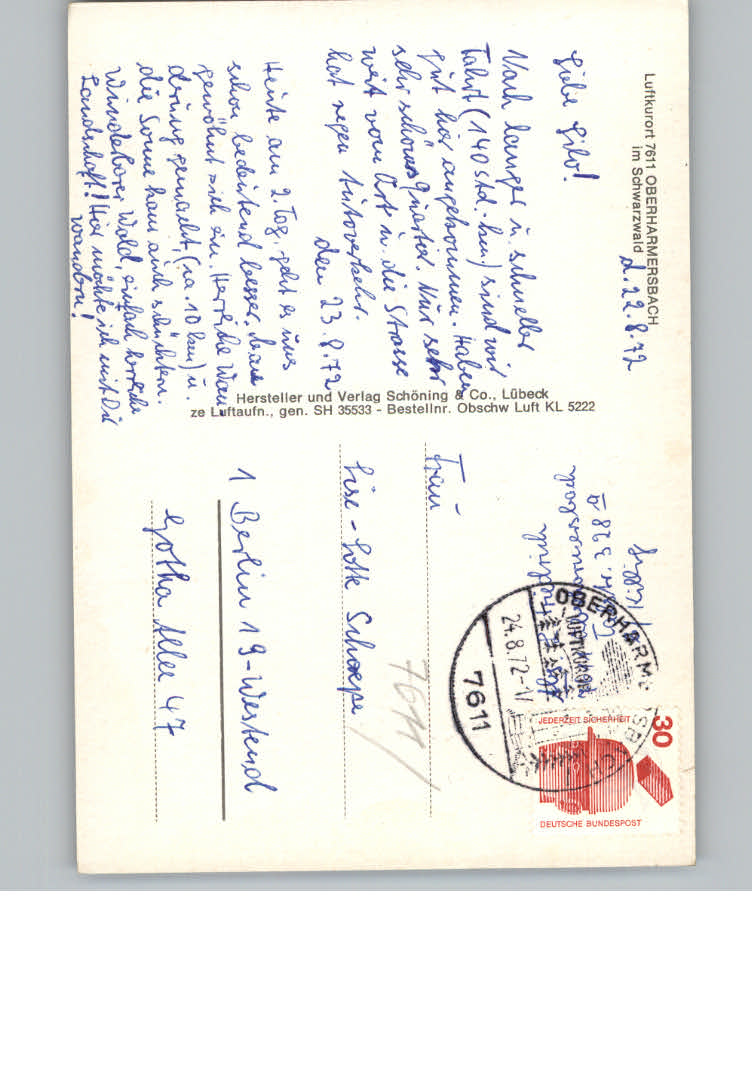 Luftkurort 7611 OBERHARMERSBACH
im Schwarzwald
d. 22.8.72
Liebe Lilo!
Nach langer u. schneller
Fahrt (140 Std. km.) sind wir
gut hier angekommen. Haben
sehr schönes Quartier. Nur sehr
weit vom Ort u. die Strasse
hat regen Autoverkehr.
den 23.8.72
Heute am 2. Tag, geht es uns
schon bedeutend besser, man
gewöhnt sich ein. Herrliche Wan-
derung gemacht, (ca. 10 km) u.
die Sonne kam auch schüchtern.
Wunderbarer Wald, einfach herrliche
Landschaft! Hier möchte ich mit Dir
wandern!
Hersteller und Verlag Schöning & Co., Lübeck
ze Luftaufn., gen. SH 35533 - Bestellnr. Obschw Luft KL 5222
7611
OBERHARMERSBACH
LUFTKURORT
24.8.72-17
7611
30
JEDERZEIT SICHERHEIT
DEUTSCHE BUNDESPOST
Frau
Lise-Lotte Schoepe
1 Berlin 19-Westend
Gotha Allee 47